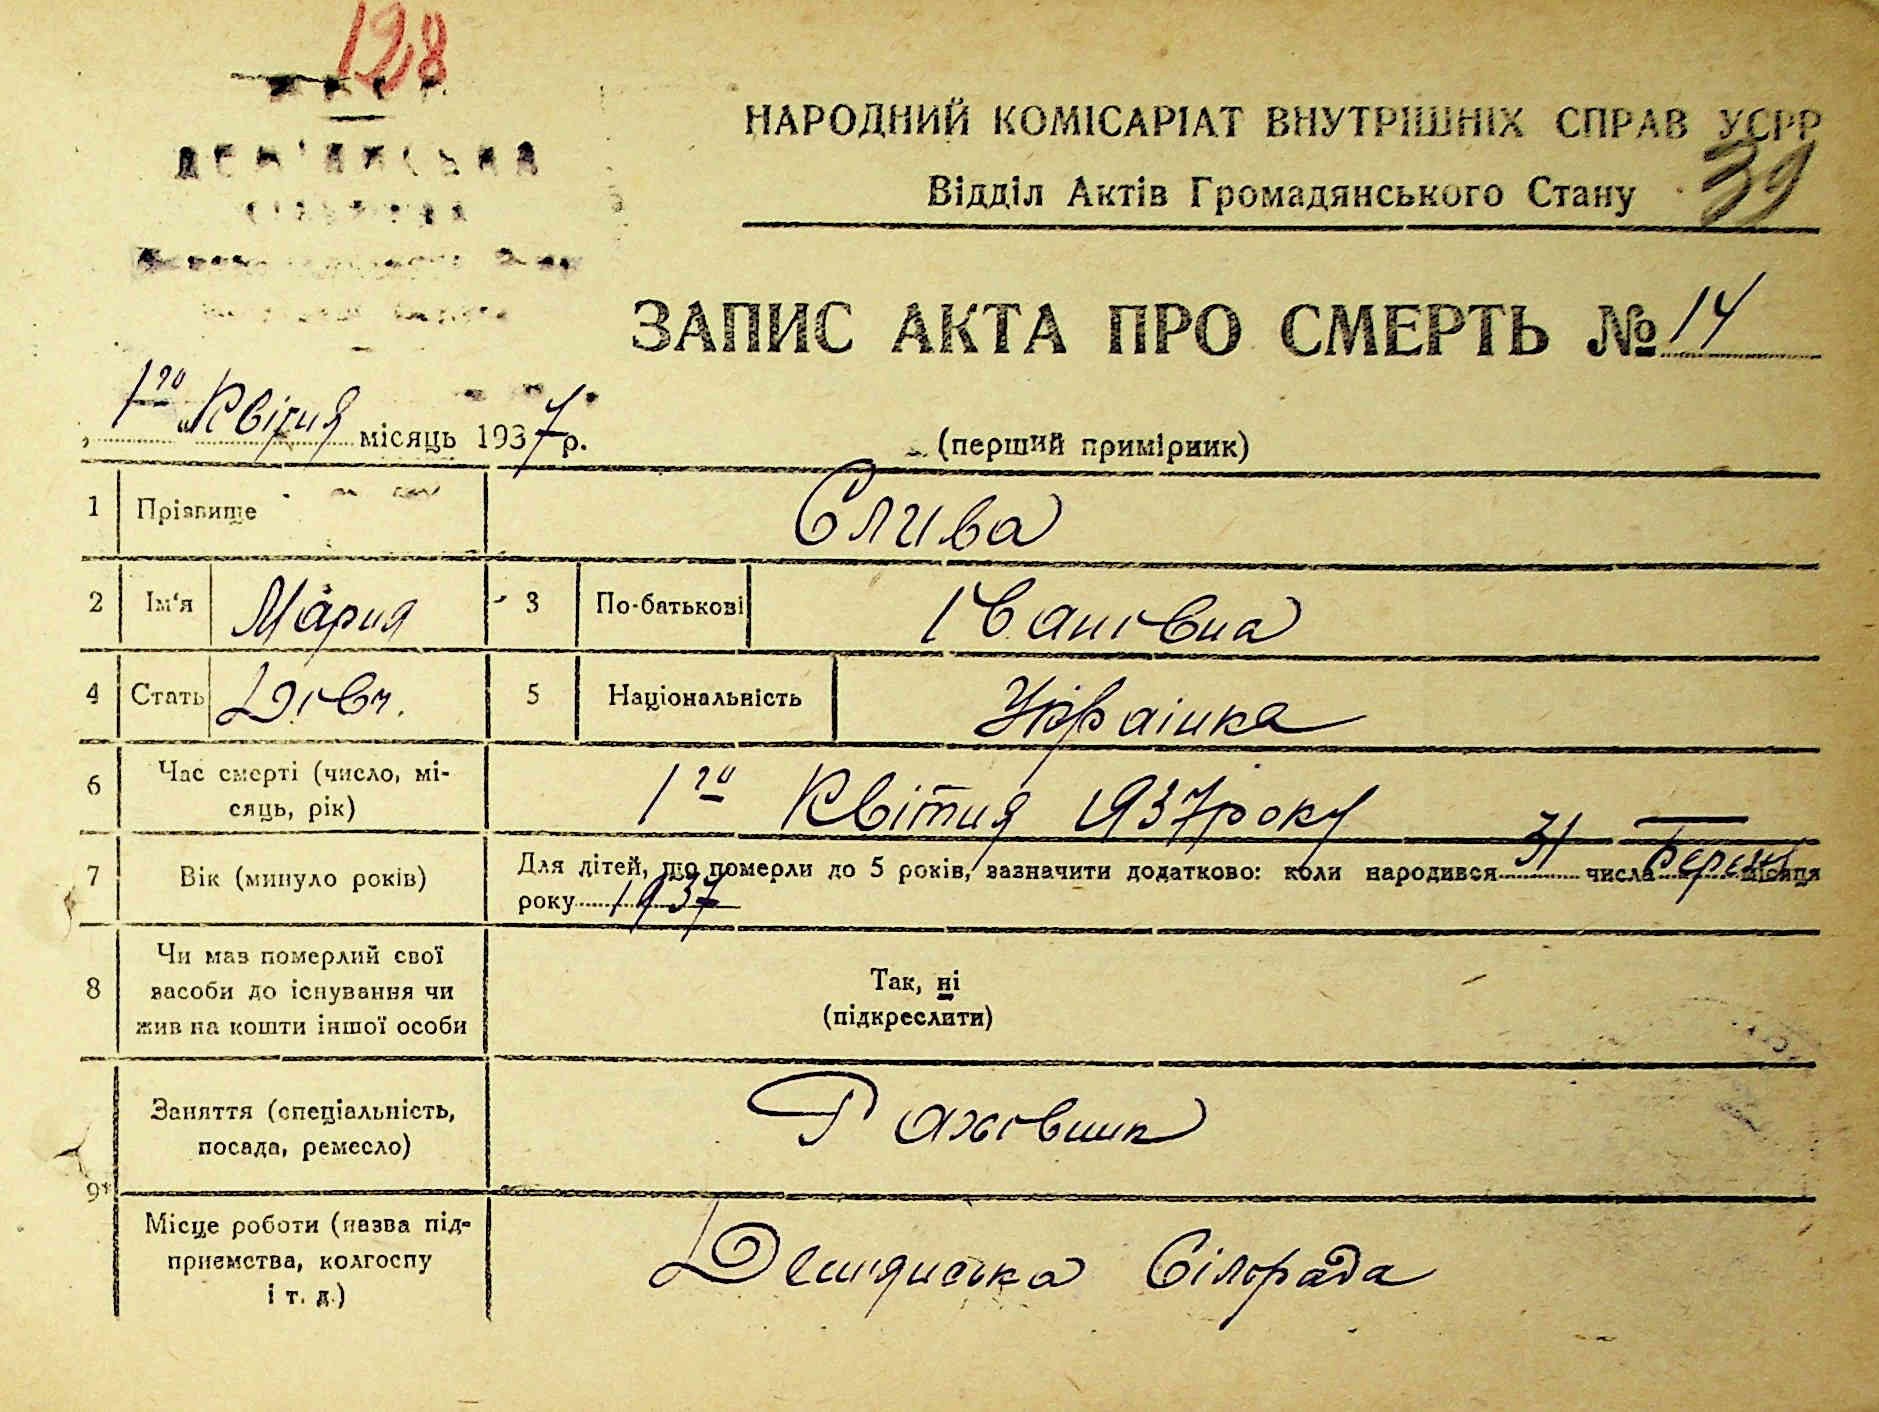 128
НАРОДНИЙ КОМІСАРІАТ ВНУТРІШНІХ СПРАВ УСРР
Відділ Актів Громадянського Стану
39
ЗАПИС АКТА ПРО СМЕРТЬ № 14
1го Квітня місяць 1937 р.
(перший примірник)
1 Прізвище Слива
2 Ім'я Мария 3 По-батькові Івановна
4 Стать Дівч. 5 Національність Українка
6 Час смерті (число, мі-
сяць, рік) 1го Квітня 1937 року
7 Вік (минуло років) Для дітей, що померли до 5 років, зазначити додатково: коли народився 31 числа Березня місяця
року 1937
8 Чи мав померлий свої
засоби до існування чи
жив на кошти іншої особи
Так, ні
(підкреслити)
9 Заняття (спеціальність,
посада, ремесло) Раховник
Місце роботи (назва під-
приємства, колгоспу
і т. д.) Дем'янська Сілрада